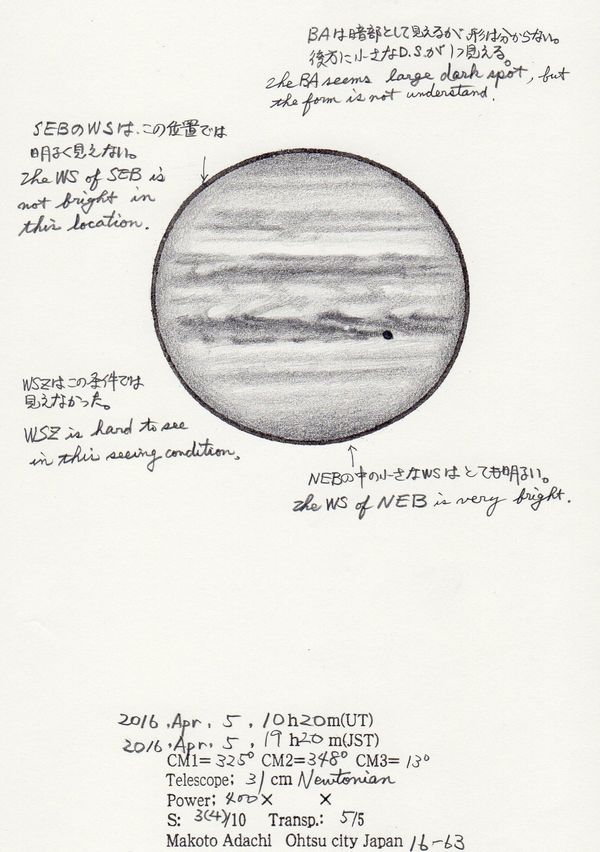 BAは暗部として見えるが、形は分からない。
後方に小さなD.S.が1つ見える。
The BA seems large dark spot, but
the form is not understand.
SEBのWSは、この位置では
明るく見えない。
The WS of SEB is
not bright in
this location.
WSZはこの条件では
見えなかった。
WSZ is hard to see
in this seeing condition.
NEBの中の小さなWSはとても明るい。
The WS of NEB is very bright.
2016, Apr. 5, 10h20m(UT)
2016, Apr. 5, 19h20m(JST)
CM1= 325° CM2= 348° CM3= 13°
Telescope; 31 cm Newtonian
Power; 400× ×
S: 3(4)/10 Transp.: 5/5
Makoto Adachi Ohtsu city Japan 16-63